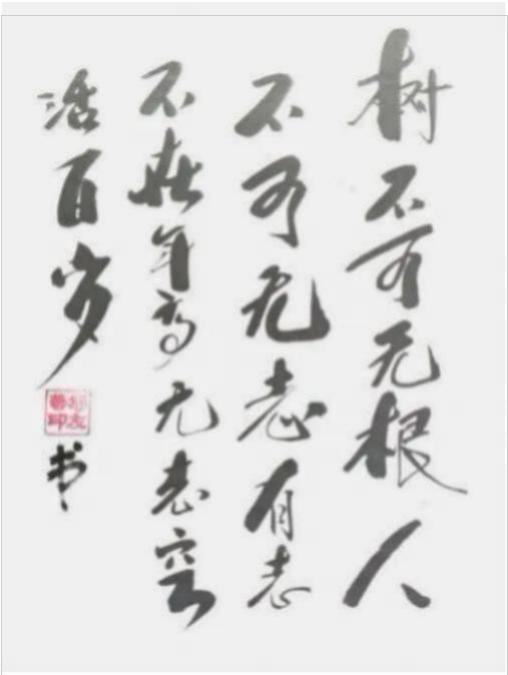 树不可无根人
不可无志有志
不在年高无志空
活百岁
书